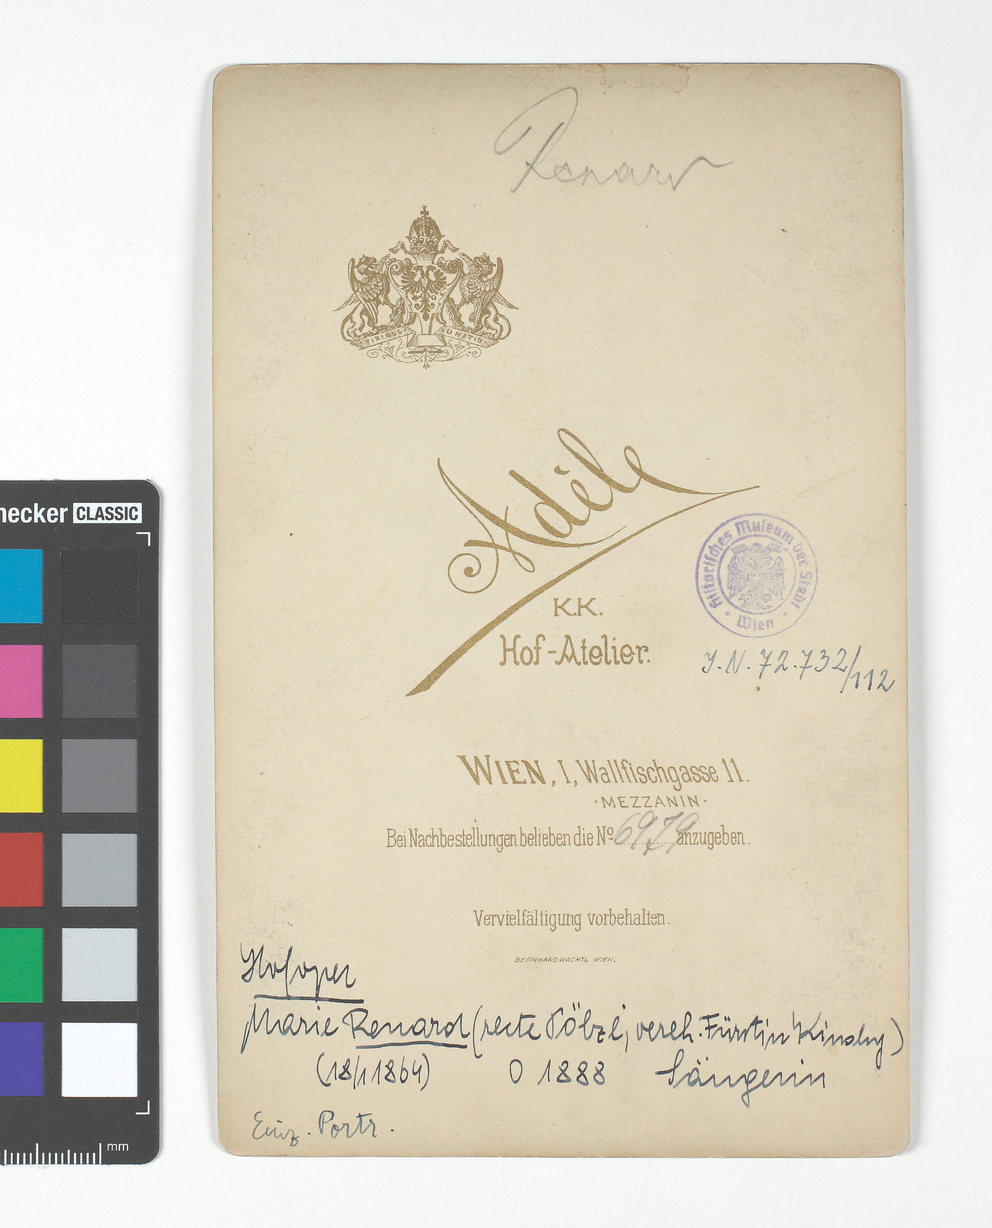 Renard
VIRIBUS UNITIS
Adèle
K.K.
Hof-Atelier.
Historisches Museum der Stadt Wien
J.N. 72.732/112
WIEN, I, Wallfischgasse 11.
·MEZZANIN·
Bei Nachbestellungen belieben die Nº 6979 anzugeben.
Vervielfältigung vorbehalten.
BERNHARD WACHTL WIEN.
Hofoper
Marie Renard (recte Pölzl, vereh. Fürstin Kinsky)
(18/1 1864) O 1888 Sängerin
Einz. Portr.
necker CLASSIC
mm